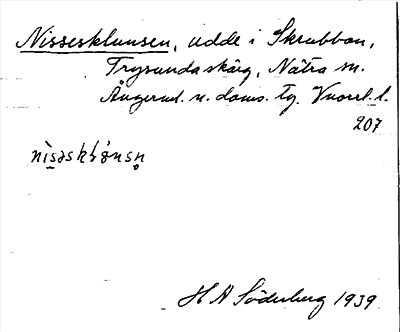 Nissesklunsen, udde i Skrubban,
Trysunda skärg, Nätra sn.
Ångerml. n. doms. Tg. Vuorel. l.
207
nìsəskḷo̊nsn̥
H A Söderberg 1939